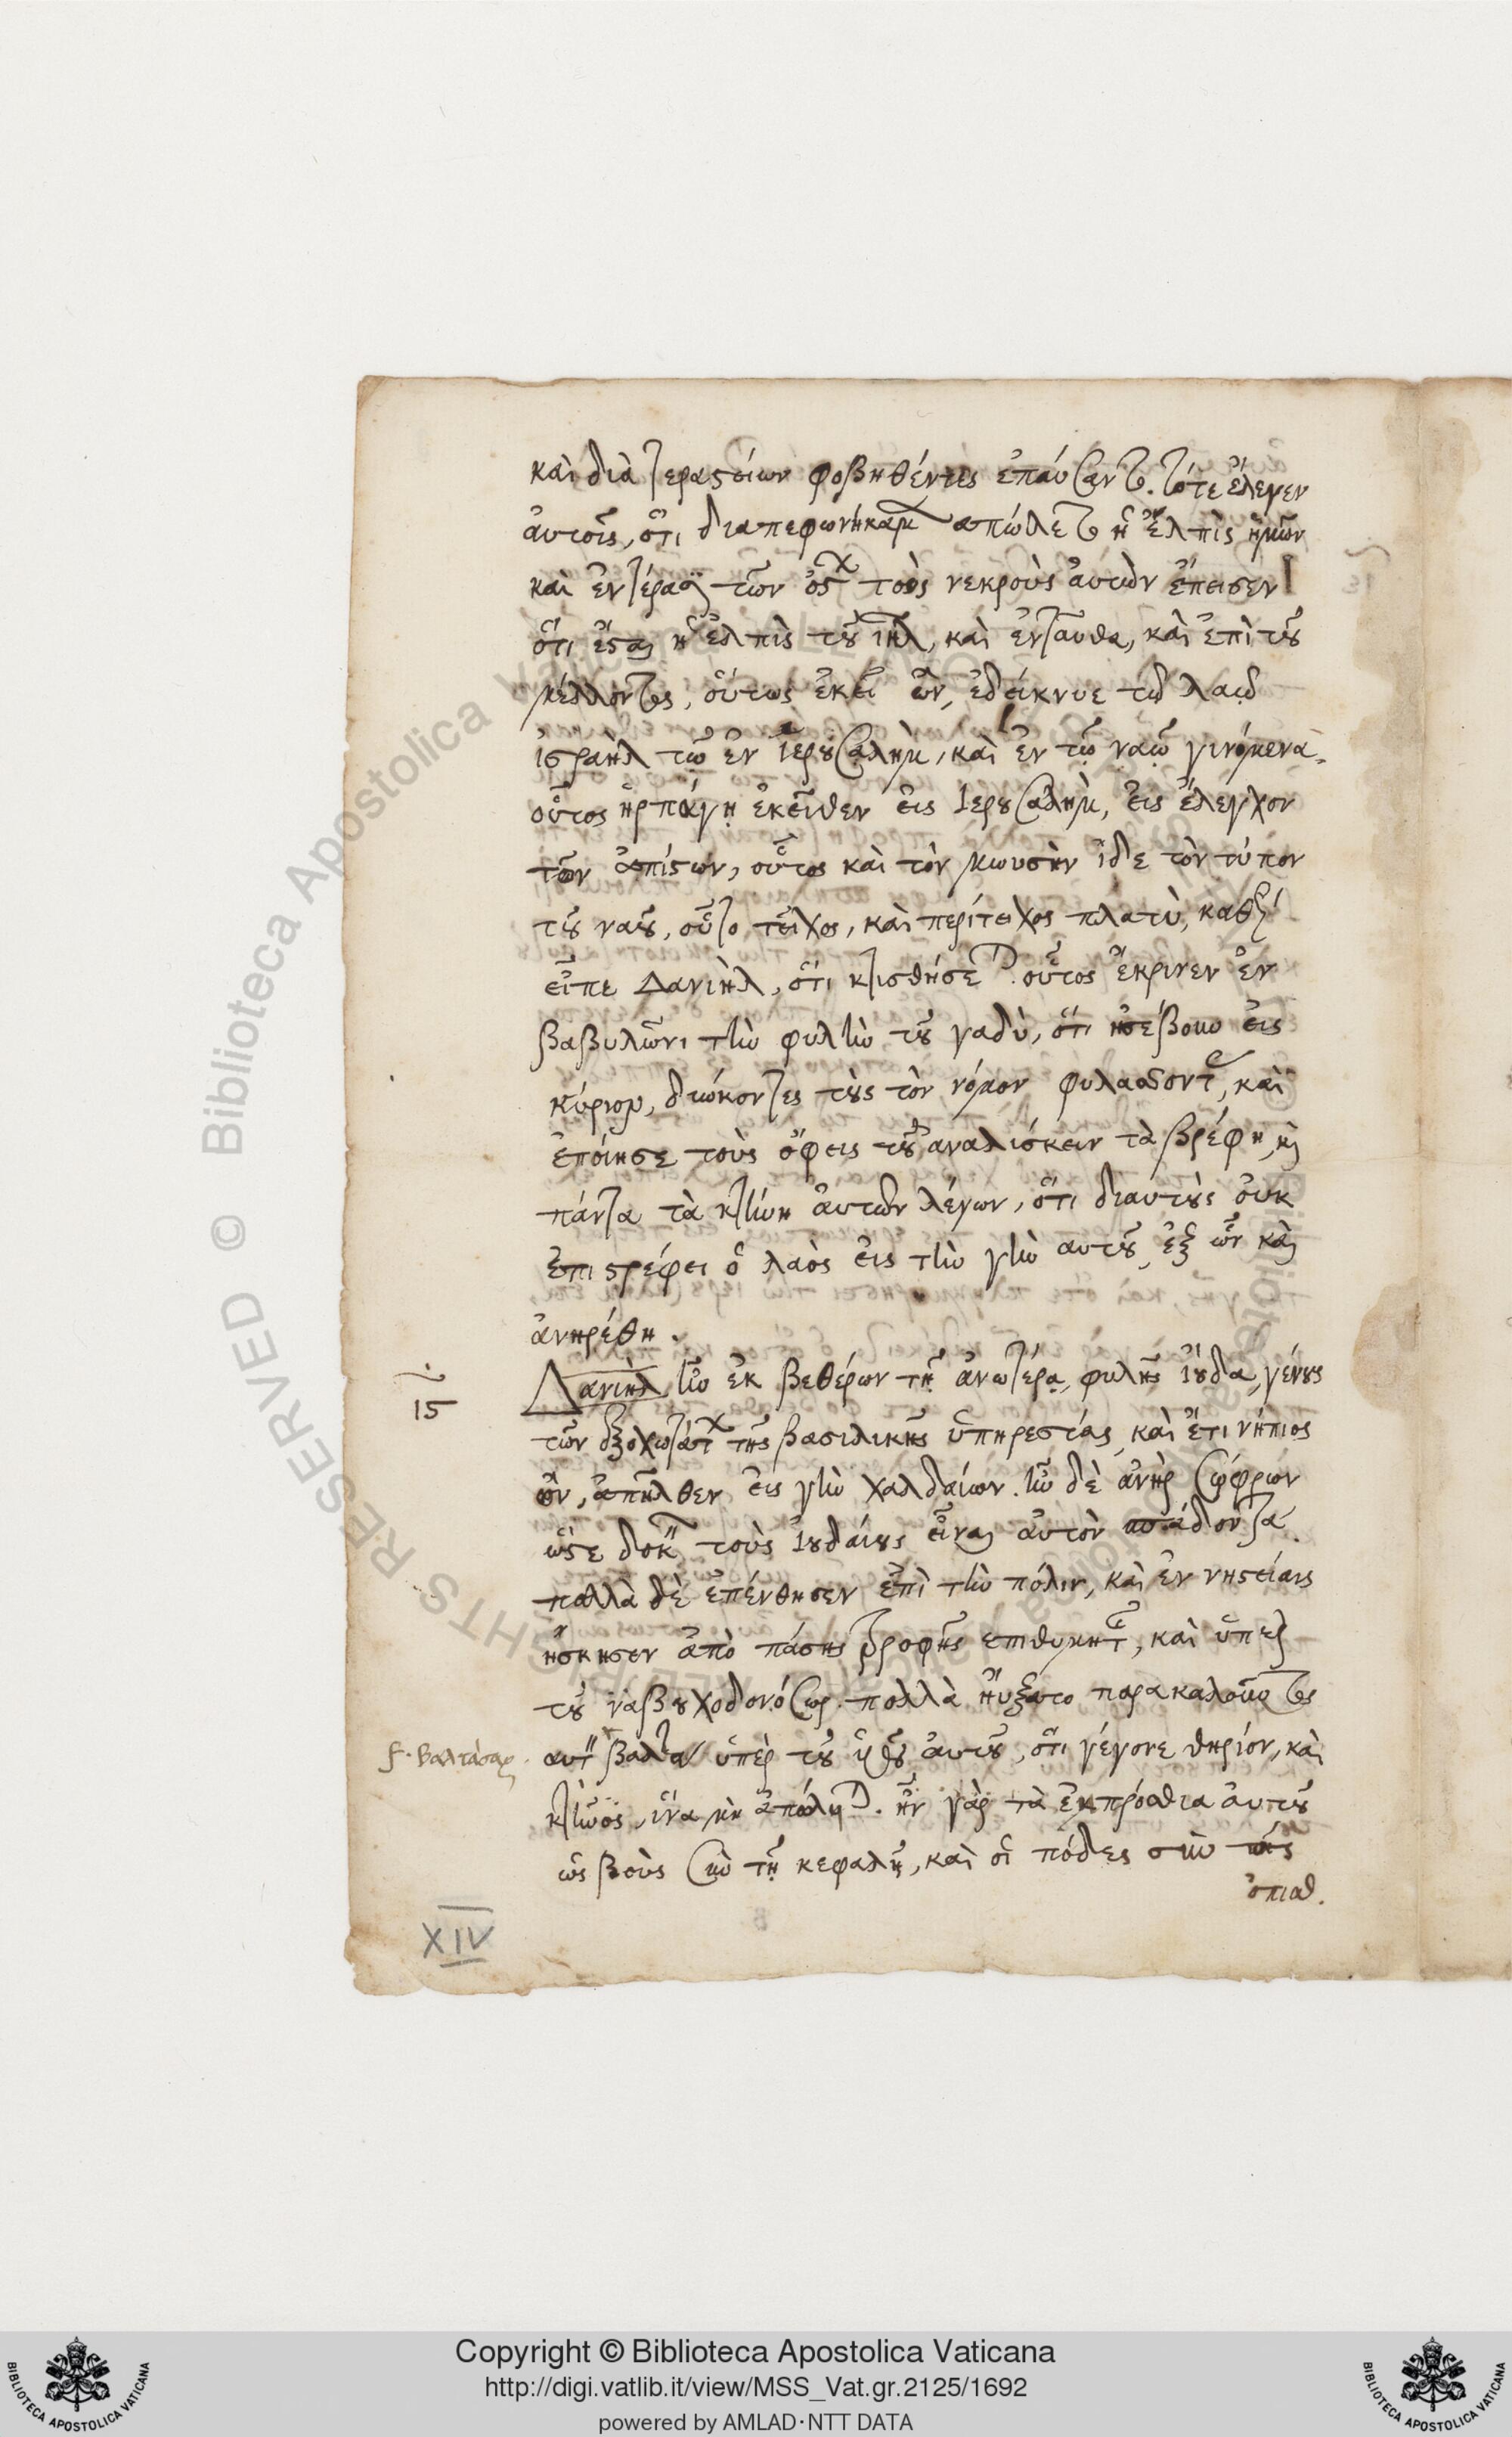 καὶ διὰ τεραστίων φοβηθέντες ἐπαύσαντο. τότε ἔλεγεν
ἀυτοῖς, ὅτι διαπεφωνήκαμ ἀπώλετο ἡ ἐλπὶς ἡμῶν
καὶ ἐν τέρασι τῶν ὀστ τοὺς νεκροὺς ἀυτῶν ἔπεισεν
ὅτι ἔσται ἡ ἐλπὶς τοῦ ιηλ, καὶ ἐνταυθα, καὶ ἐπὶ τοῦ
μέλλοντος, οὕτως ἐκεῖ ὢν, ἐδείκνυε τῷ λαῷ
ἰσραὴλ τῷ ἐν Ἱερουσαλὴμ, καὶ ἐν τῷ ναῷ γινόμενα.
οὗτος ἡρπάγη ἐκεῖθεν εἰς Ἱερουσαλὴμ, εἰς ἔλεγχον
τῶν ἀπίστων, οὗτος καὶ τὸν μωυσὴν ἴδε τὸν τύπον
τοῦ ναοῦ, οὗ το τεῖχος, καὶ περίτειχος πλατὺ, καθὼς
εἶπε Δανιὴλ, ὅτι κτισθήσεται. οὗτος ἔκρινεν ἐν
βαβυλῶνι τὴν φυλὴν τοῦ γαδὺ, ὅτι ἠσέβουν εἰς
κύριον, διώκοντες τοὺς τὸν νόμον φυλασσοντ, καὶ
ἐποίησε τοὺς ὄφεις τοῦ ἀναλίσκειν τὰ βρέφη, καὶ
πάντα τὰ κτήνη ἀυτῶν λέγων, ὅτι διαυτοὺς οὐκ
ἐπιστρέφει ὁ λαὸς εἰς τὴν γὴν αυτοῦ, ἐξ ὧν καὶ
ἀνῃρέθη.
ιε
Δανιὴλ, ἦν ἐκ βεθέρων τῇ ἀνωτέρᾳ, φυλῆς ἰούδα, γένους
τῶν ἐξοχωτάτ τῆς βασιλικῆς ὑπηρεσίας, καὶ ἔτι νήπιος
ὢν, ἀπῆλθεν εἰς γὴν χαλδαίων. ἦν δὲ ἀνὴρ σώφρων
ὥστε δοκ τοὺς Ἰουδαίους εἶναι ἀυτὸν σπάδοντα.
πολλὰ δὲ ἐπένθησεν ἐπὶ τὴν πόλιν, καὶ ἐν νηστείαις
ἤσκησεν ἀπὸ πάσης τροφῆς επιθυμητ, καὶ ὑπὲρ
τοῦ ναβουχοδονόσωρ. πολλὰ ἤυξατο παρακαλοῦντος
f. βαλτάσαρ
αυτ βαλτα ὑπὲρ τοῦ ἀυτοῦ, ὅτι γέγονε θηρίον, καὶ
κτῆνος, ἵνα μὴ ἀπόληται. ἦν γὰρ τὰ ἐμπρόσθια ἀυτοῦ
ὡς βοὺς σὺν τῇ κεφαλῇ, καὶ οἱ πόδες σὺν τοῖς
ὀπισθ.
XIV
Copyright © Biblioteca Apostolica Vaticana
http://digi.vatlib.it/view/MSS_Vat.gr.2125/1692
powered by AMLAD·NTT DATA